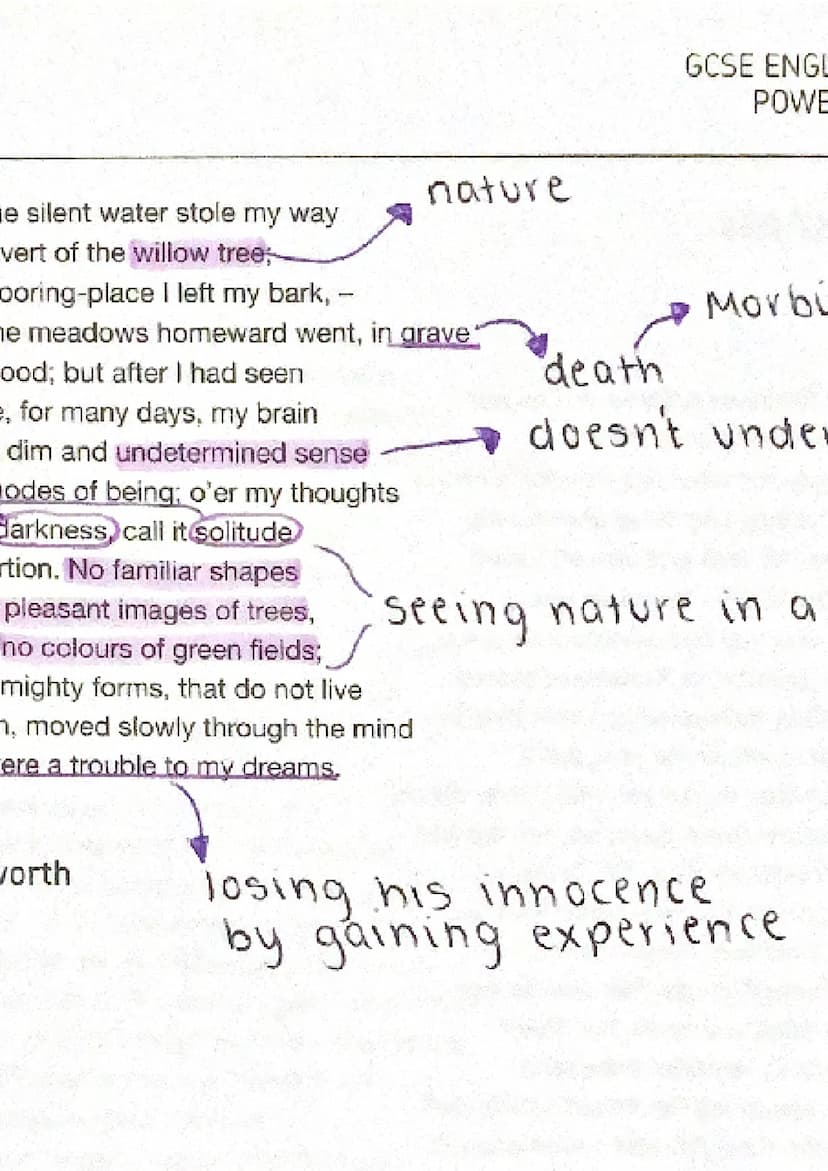 GCSE ENGL
POWE
nature
e silent water stole my way
vert of the willow tree;
ooring-place I left my bark, –
Morbi
e meadows homeward went, in grave
death
ood; but after I had seen
, for many days, my brain
doesn't under
dim and undetermined sense
odes of being; o'er my thoughts
darkness, call it solitude
rtion. No familiar shapes
seeing nature in a
pleasant images of trees,
no colours of green fields;
mighty forms, that do not live
n, moved slowly through the mind
ere a trouble to my dreams.
worth
losing his innocence
by gaining experience